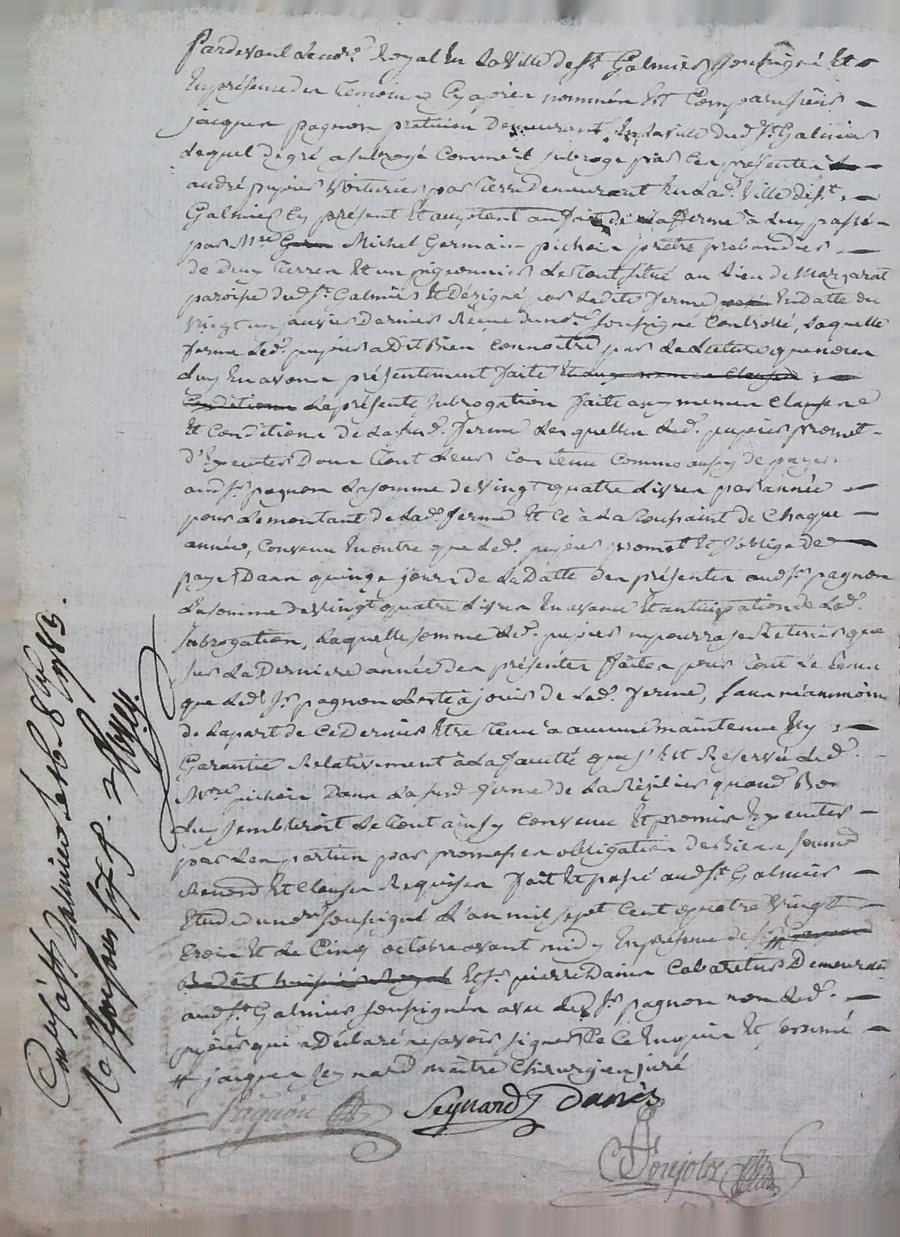 Pardevant Le no.re Royal En La Ville de St Galmier soussigné Et
En présence des temoins Cy apres nommés Est Comparu sieur
jacques pagnon praticien Demeurant En La ville dud. St. Galmier
Lequel de gré a subrogé Comme il subroge par Ces présentes
andré pujeir Voiturier par terre Demeurant En Lad. Ville de St.
Galmier Cy présent Et acceptant au fait de La ferme à Luy passée
par Mre Michel Germain pichoin prêtre prebandier
de Deux terres Et un pigeonnier Le tout situé au Lieu de Margarat
paroisse dud. St. Galmier Et Désigné par Ladite ferme En Datte du
Vingt un janvier Dernier Reçue du no.re soussigné Controllé, Laquelle
ferme Led. pujeir a Dit Bien Connoitre par La Lecture que nous
Luy En avons présentement faite Et aux memes Clauses
Conditions La présente subrogation faite aux memes Clauses
Et Conditions de La susd. ferme Lesquelles Led. pujeir promet
d'Executer Dans tout Leur Contenu Comme aussy de payer
aud. Sr. pagnon La somme de Vingt quatre Livres par année
pour Le montant de Lad. ferme Et Ce à La toussaint de Chaque
année, Convenu En outre que Led. pujeir promet Et s'oblige de
payer Dans quinze jours de La Datte des présentes aud. Sr. pagnon
La somme de Vingt quatre Livres En avance Et anticipation de Lad.
subrogation, Laquelle somme Led. pujeir ne pourra se Retenir que
sur La Derniere année des présentes faites pour tout Le tems
que Led. Sr. pagnon de Lad. ferme, sans néanmoins
de La part de Ce Dernier Etre tenu à aucune maintenue Ny
Garantie Relativement à La faculté que s'Est Reservée Led.
Mre pichoin Dans La susd. ferme de La Résilier quand Bon
Luy sembleroit Le tout ainsy Convenu Et promis Executer
par Les parties par promesses obligation de Biens soumis
Renond. Et Clauses Requises fait Et passé aud. St. Galmier
Etude du no.re soussigné L'an mil sept Cent quatre Vingt
trois Et Le Cinq octobre avant midy En présence de #
huissier Royal Et Sr. pierre Danis Cabaretier Demeurant
aud. St. Galmier soussignés avec Led. Sr. pagnon non Led.
pujeir qui a Declaré ne savoir signer De Ce Enquis Et sommé
# jacques Seynard maître Chirurgien juré
Pagnon Seynard Danis
Ponjolos
Con.lé à St Galmier Le 10 8bre 1783.